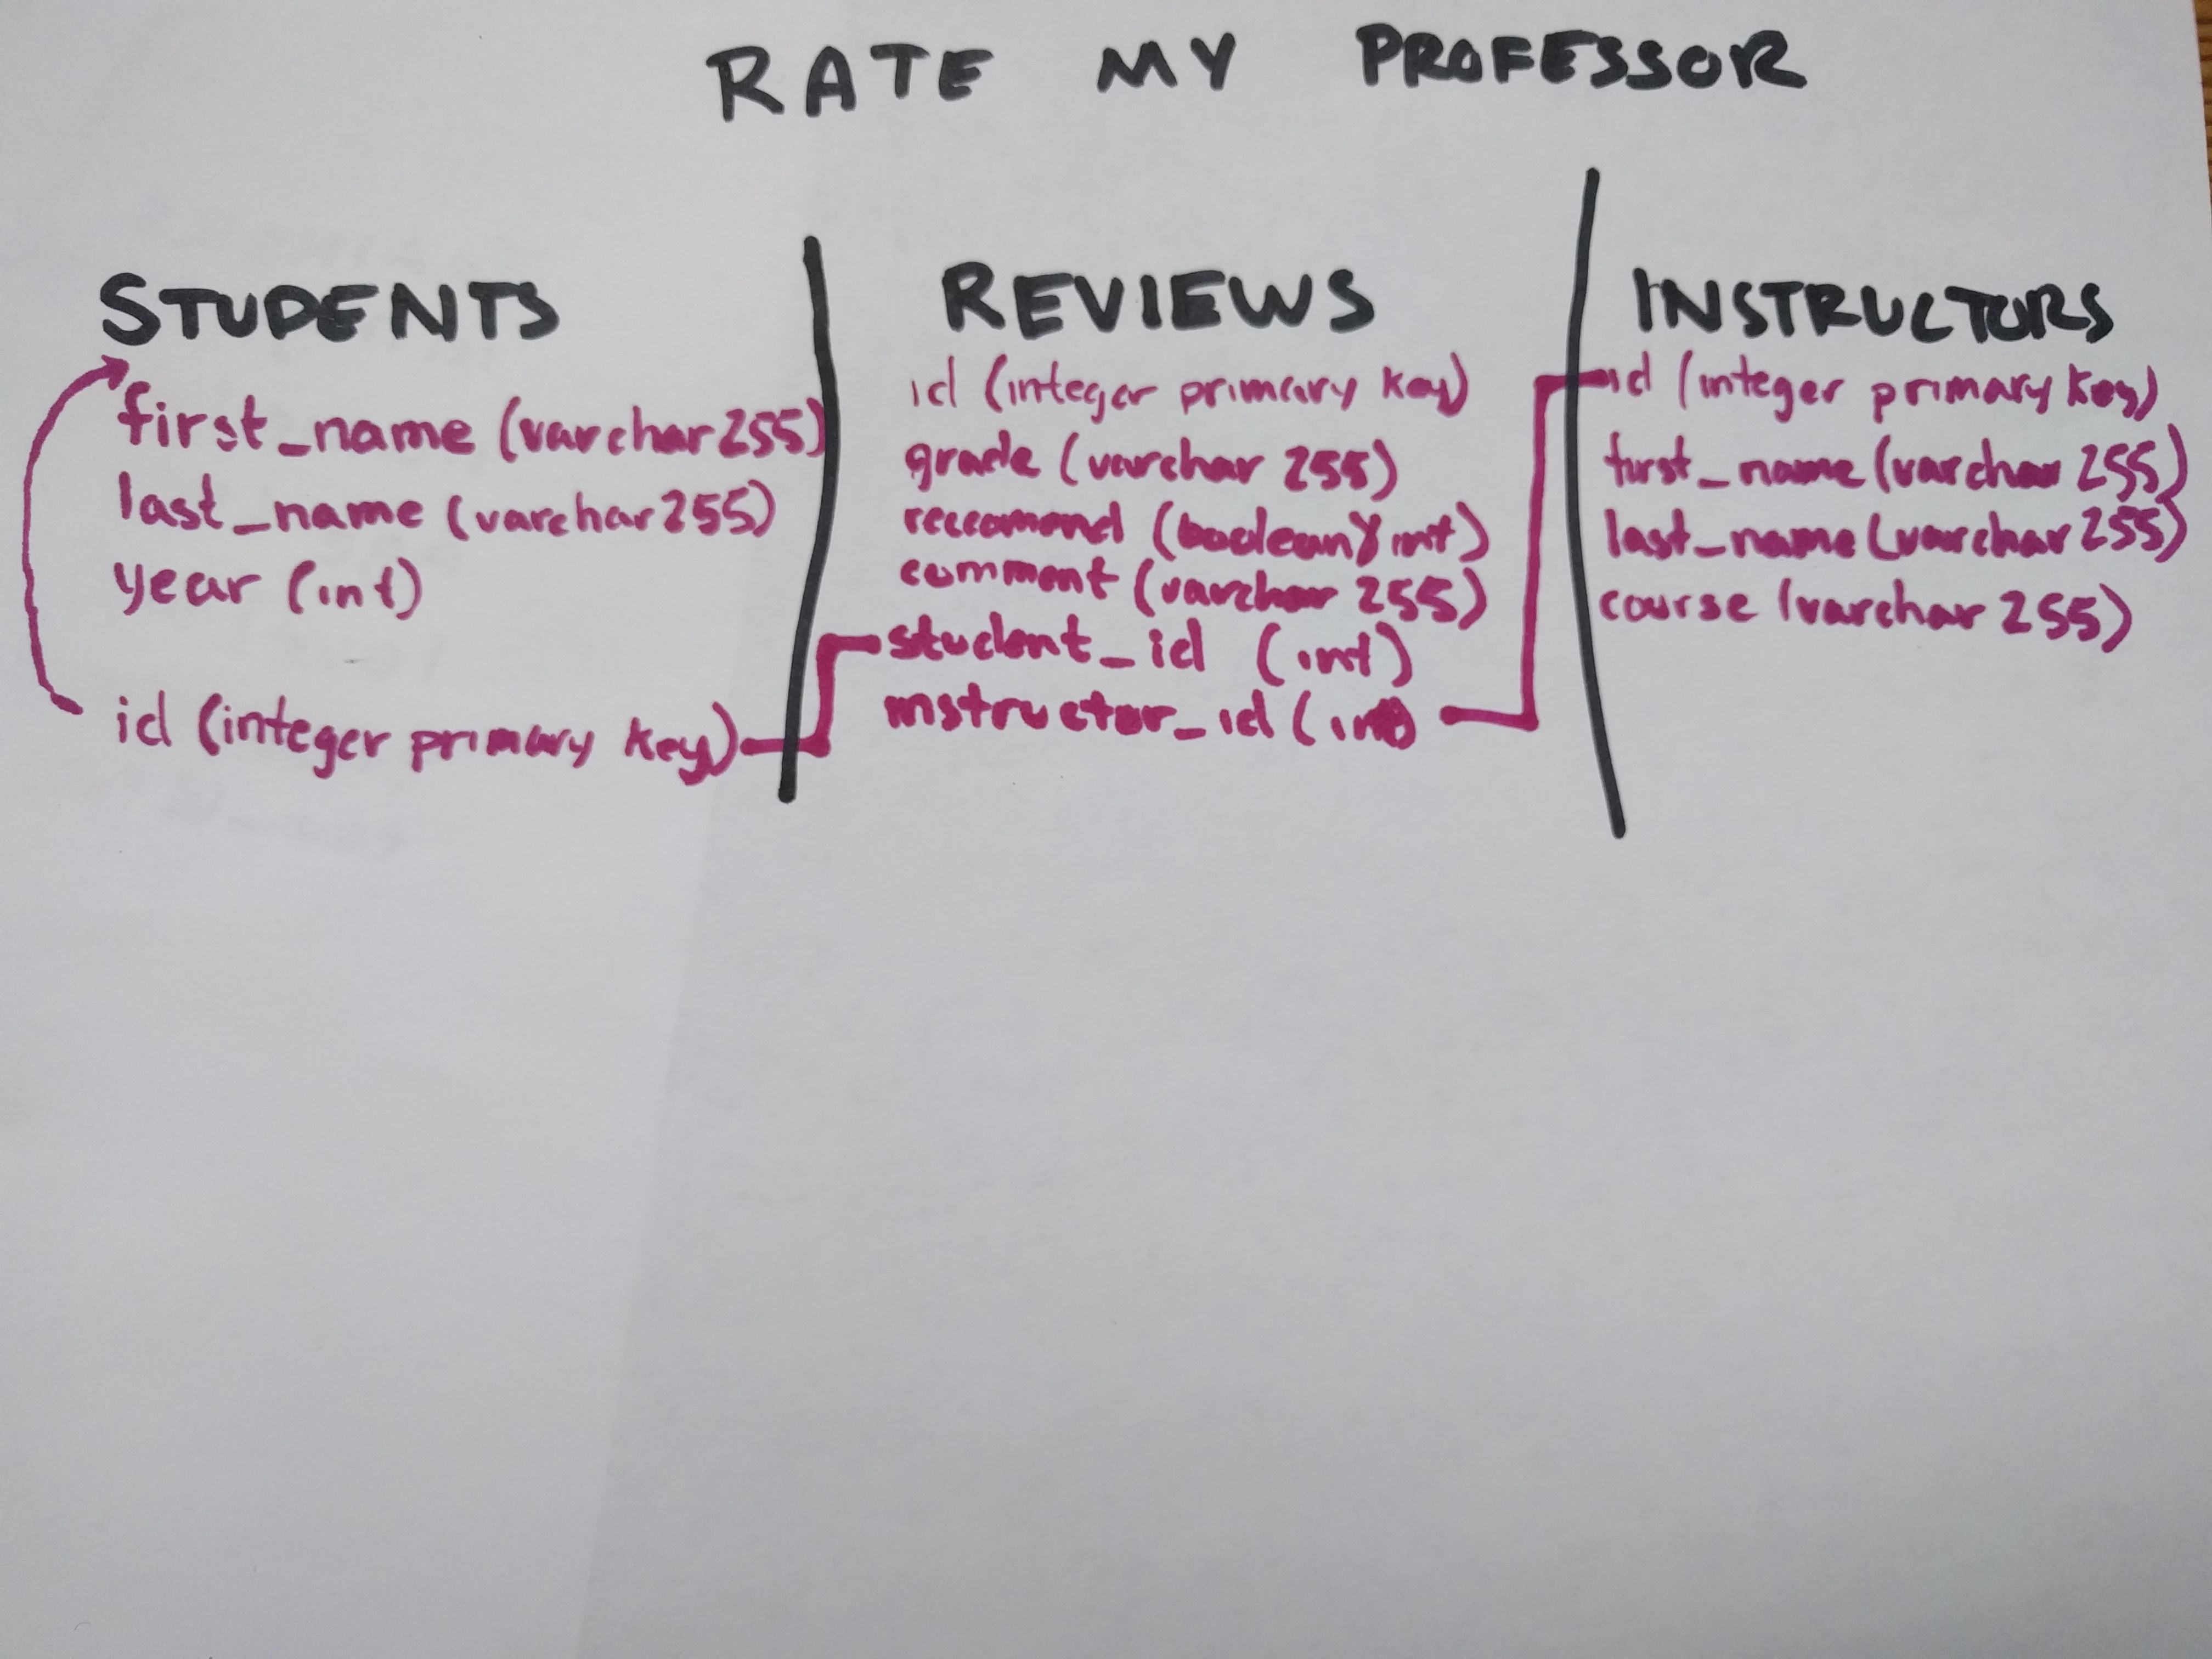 RATE MY PROFESSOR
STUDENTS
first_name (varchar 255)
last_name (varchar 255)
year (int)
id (integer primary key)
REVIEWS
id (integer primary key)
grade (varchar 255)
reccomend (boolean) int)
comment (varchar 255)
student_id (int)
instructor_id (int)
INSTRUCTORS
id (integer primary key)
first_name (varchar 255)
last_name (varchar 255)
course (varchar 255)